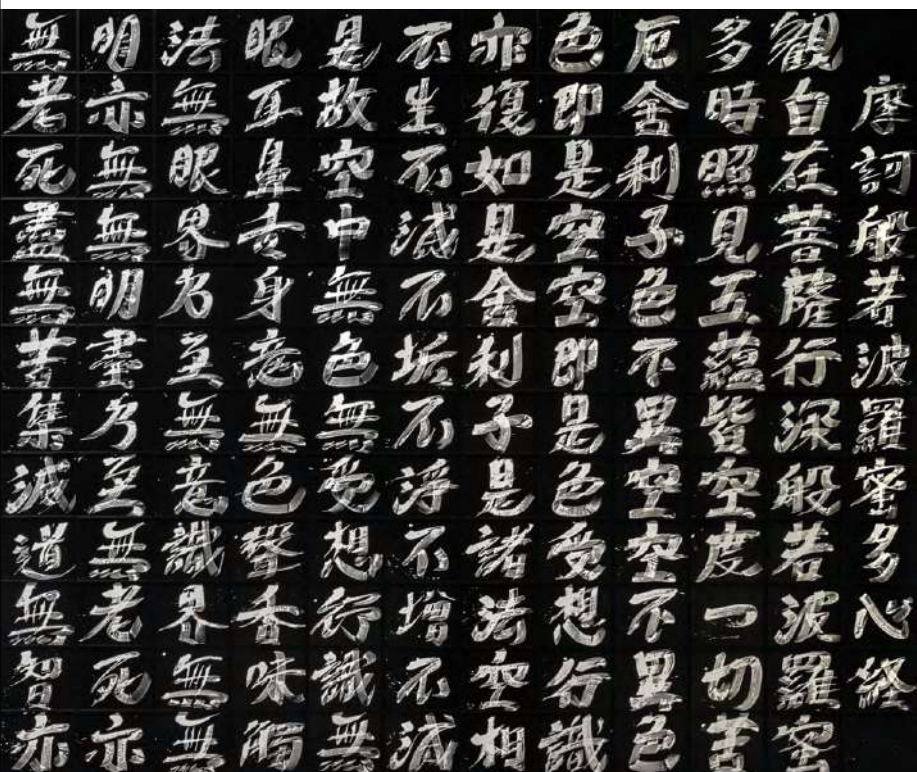 摩訶般若波羅蜜多心経
観自在菩薩行深般若波羅蜜
多時照見五蘊皆空度一切苦
厄舎利子色不異空空不異色
色即是空空即是色受想行識
亦復如是舎利子是諸法空相
不生不滅不垢不浄不増不減
是故空中無色無受想行識無
眼耳鼻舌身意無色聲香味觸
法無眼界乃至無意識界無無
明亦無無明盡乃至無老死亦
無老死盡無苦集滅道無智亦